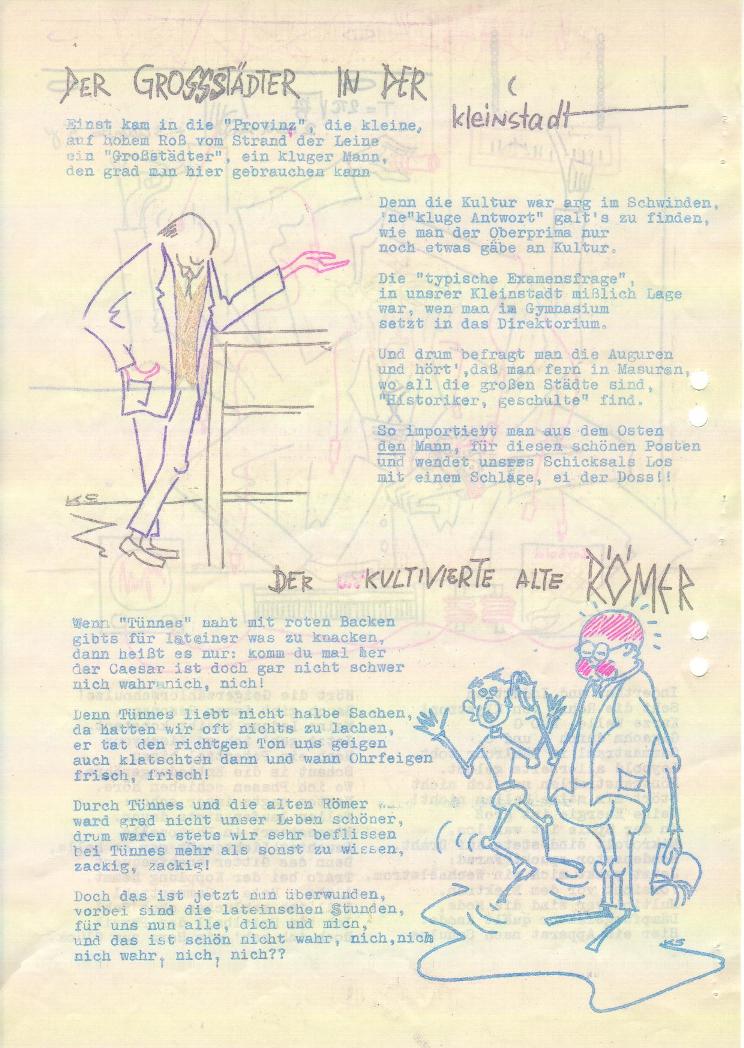 DER GROSSSTÄDTER IN DER
kleinstadt
Einst kam in die "Provinz", die kleine,
auf hohem Roß vom Strand der Leine
ein "Großstädter", ein kluger Mann,
den grad man hier gebrauchen kann
Denn die Kultur war arg im Schwinden,
'ne"kluge Antwort" galt's zu finden,
wie man der Oberprima nur
noch etwas gäbe an Kultur.
Die "typische Examensfrage",
in unsrer Kleinstadt mißlich Lage
war, wen man im Gymnasium
setzt in das Direktorium.
Und drum befragt man die Auguren
und hört',daß man fern in Masuren,
wo all die großen Städte sind,
"Historiker, geschulte" find.
So importiert man aus dem Osten
den Mann, für diesen schönen Posten
und wendet unsres Schicksals Los
mit einem Schlage, ei der Doss!!
KS
DER UNKULTIVIERTE ALTE RÖMER
Wenn "Tünnes" naht mit roten Backen
gibts für lateiner was zu knacken,
dann heißt es nur: komm du mal her
der Caesar ist doch gar nicht schwer
nich wahr nich, nich!
Denn Tünnes liebt nicht halbe Sachen,
da hatten wir oft nichts zu lachen,
er tat den richtgen Ton uns geigen
auch klatschten dann und wann Ohrfeigen
frisch, frisch!
Durch Tünnes und die alten Römer
ward grad nicht unser Leben schöner,
drum waren stets wir sehr beflissen
bei Tünnes mehr als sonst zu wissen,
zackig, zackig!
Doch das ist jetzt nun überwunden,
vorbei sind die lateinschen Stunden,
für uns nun alle, dich und mich,
und das ist schön nicht wahr, nich,nich
nich wahr, nich, nich??
KS